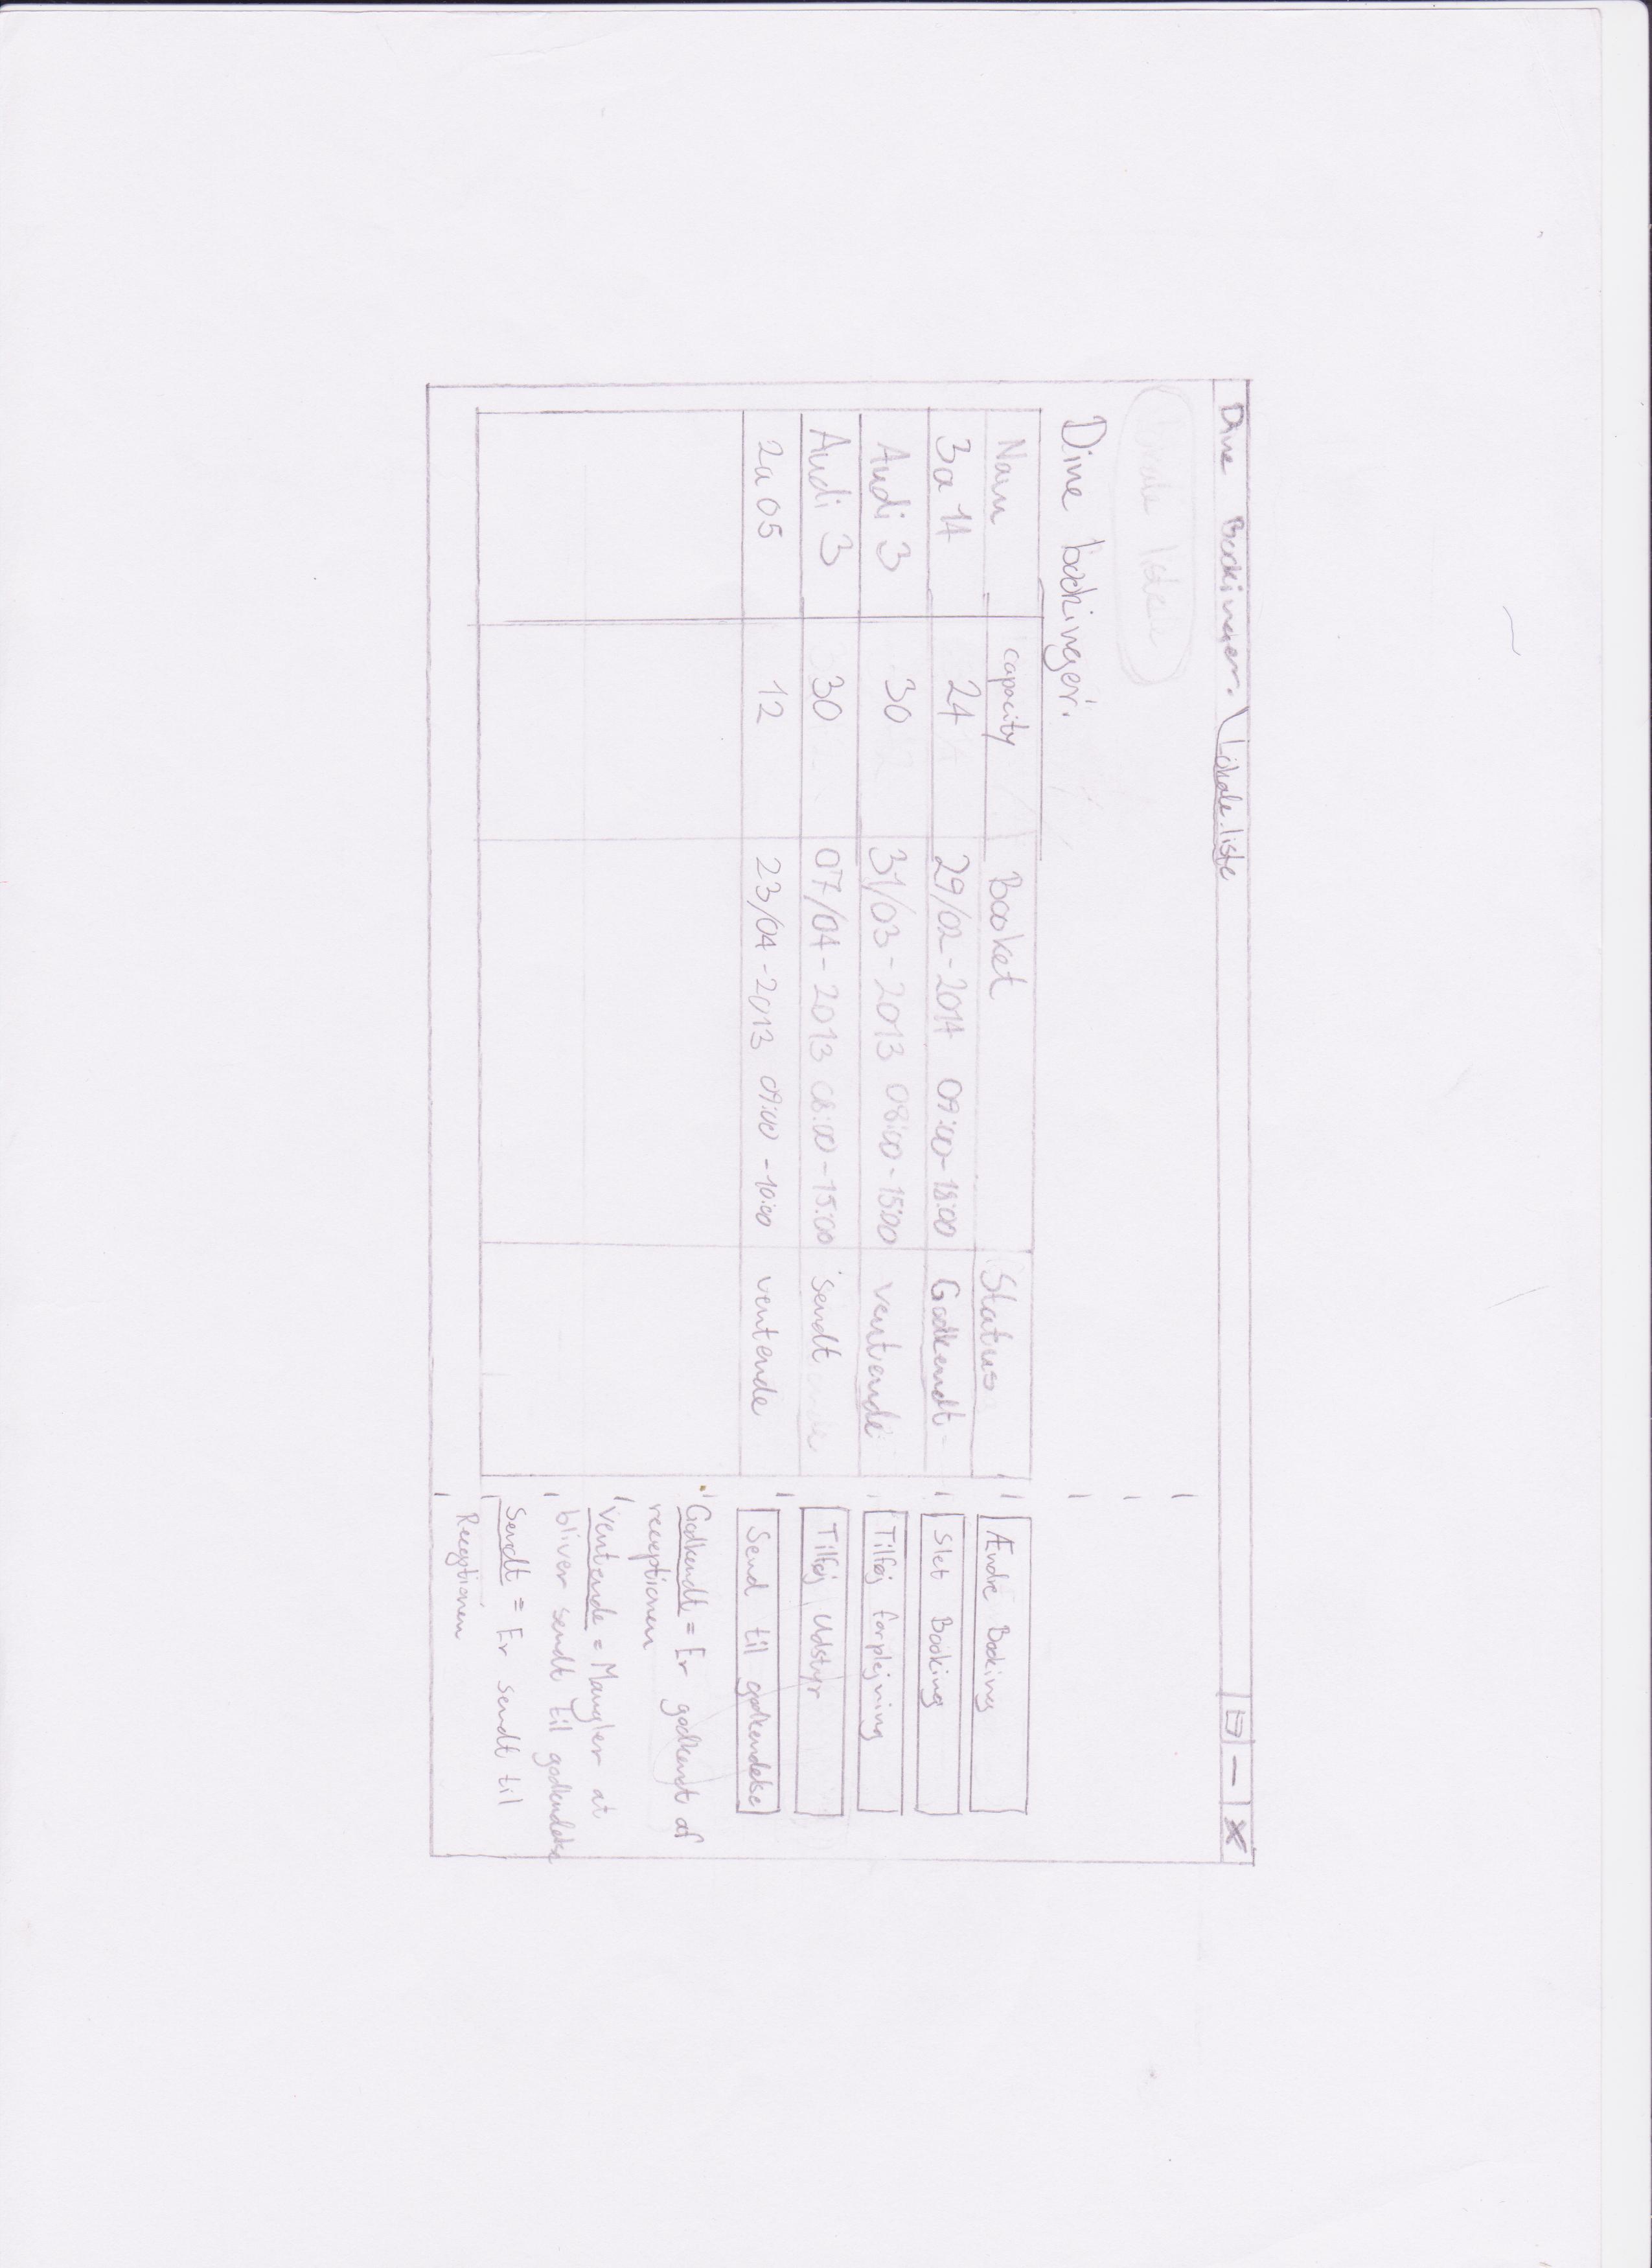 Dine Bookinger. Lokale liste
Dine bookinger:
Navn capacity Booket Status
3a 14 24 29/02-2014 09:00-18:00 Godkendt
Audi 3 30 31/03-2013 08:00-15:00 ventende
Audi 3 30 07/04-2013 08:00-15:00 sendt
2a05 12 23/04-2013 09:00-10:00 ventende
Ændre Booking
Slet Booking
Tilføj forplejning
Tilføj Udstyr
Send til godkendelse
Godkendt = Er godkent af
receptionen
Ventende = Mangler at
bliver sendt til godkendelse
Sendt = Er sendt til
Receptionen